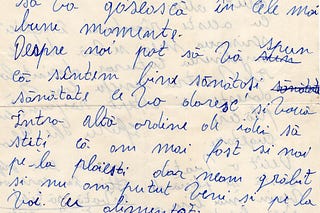 să vă găsească în cele mai
bune momente.
Despre noi pot să vă spun
că sîntem bine sănătoși
sănătate ce vă doresc și vouă
Intro altă ordine de idei să
știți că am mai fost și noi
pe-la ploiești dar neam grăbit
și nu am putut veni și pe la
voi. cu alimentați